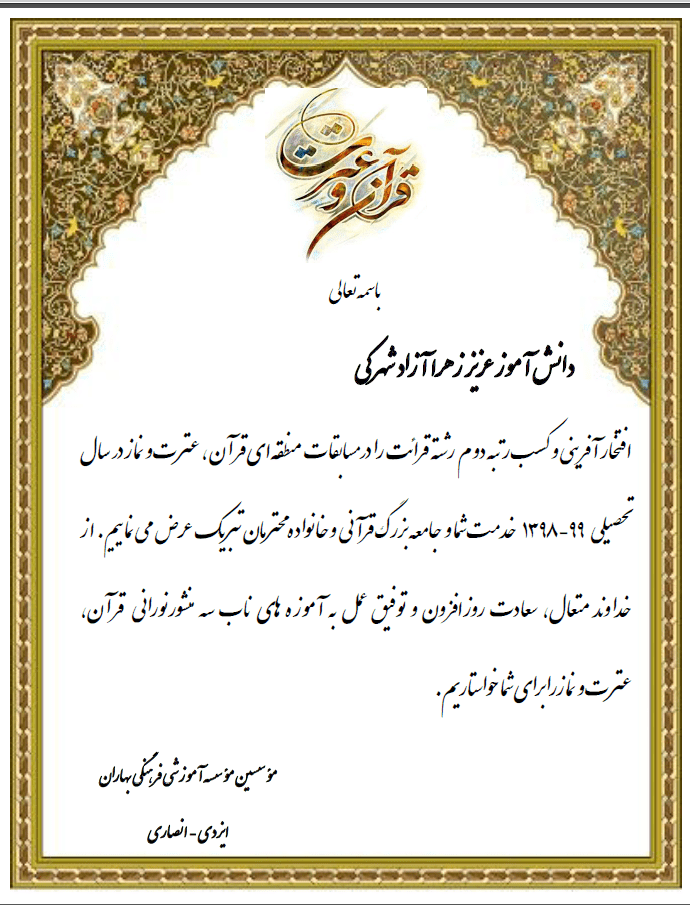 قرآن و عترت
باسمه تعالی
دانش آموز عزیز زهرا آزاد شهرکی
افتخار آفرینی و کسب رتبه دوم رشته قرائت را در مسابقات منطقه ای قرآن، عترت و نماز در سال
تحصیلی ۹۹-۱۳۹۸ خدمت شما و جامعه بزرگ قرآنی و خانواده محترمان تبریک عرض می نماییم. از
خداوند متعال، سعادت روزافزون و توفیق عمل به آموزه های ناب سه منشور نورانی قرآن،
عترت و نماز را برای شما خواستاریم.
مؤسسین مؤسسه آموزشی فرهنگی بهاران
ایزدی - انصاری